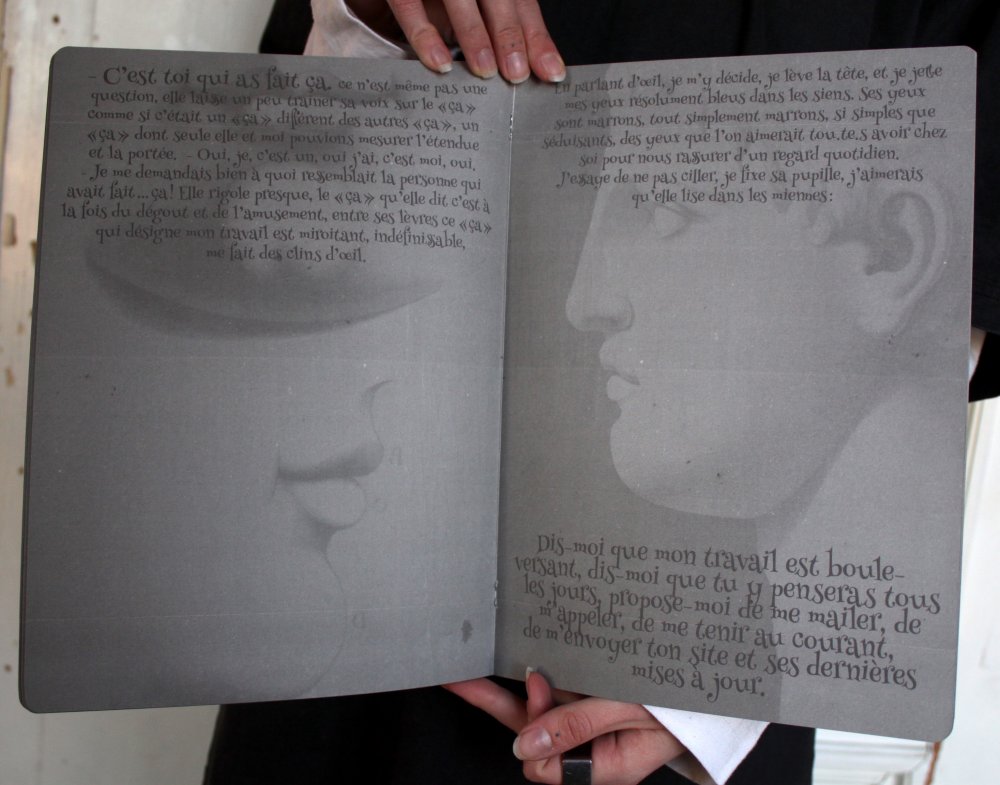 - C'est toi qui as fait ça. ce n'est même pas une
question, elle laisse un peu trainer sa voix sur le «ça»
comme si c'était un «ça» diférent des autres «ça», un
«ça» dont seule elle et moi pouvions mesurer l'étendue
et la portée. - Oui, je, c'est un, oui j'ai, c'est moi, oui.
- Je me demandais bien à quoi ressemblait la personne qui
avait fait...ça! Elle rigole presque, le «ça» qu'elle dit c'est à
la fois du dégout et de l'amusement, entre ses lèvres ce «ça»
qui désigne mon travail est miroitant, indéfinissable,
me fait des clins d'œil.
En parlant d'œil, je m'y décide, je lève la tête, et je jette
mes yeux résolument bleus dans les siens. Ses yeux
sont marrons, tout simplement marrons, si simples que
séduisants, des yeux que l'on aimerait tou.te.s avoir chez
soi pour nous rassurer d'un regard quotidien.
J'essaye de ne pas ciller, je fixe sa pupille, j'aimerais
qu'elle lise dans les miennes:
Dis-moi que mon travail est boule-
versant, dis-moi que tu y penseras tous
les jours, propose-moi de me mailer, de
m'appeler, de me tenir au courant,
de m'envoyer ton site et ses dernières
mises à jour.